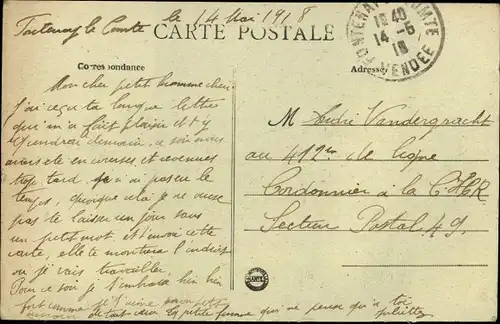 Fontenay le Comte le 14 Mai 1918
CARTE POSTALE
FONTENAY COMTE
10 40
14 - 5
18
VENDEE
Correspondance
Adresse
Mon cher petit homme cheri
J'ai reçu ta longue lettre
qui m'a fait plaisir et j'y
répondrai demain, ce soir nous
avons été en courses et revenues
trop tard, je n'ai pas eu le
temps, quoique cela je ne veux
pas te laisser un jour sans
un petit mot, et t'envoi cette
carte, elle te montrera l'endroit
où je vais travailler
Pour ce soir je t'embrasse bien bien
fort comme je t'aime mon petit
de tout cœur ta petite femme qui ne pense qu'à toi
Juliette
M André Vandergracht
au 412e de ligne
Cordonnier à la C.H.R
Secteur Postal 49.